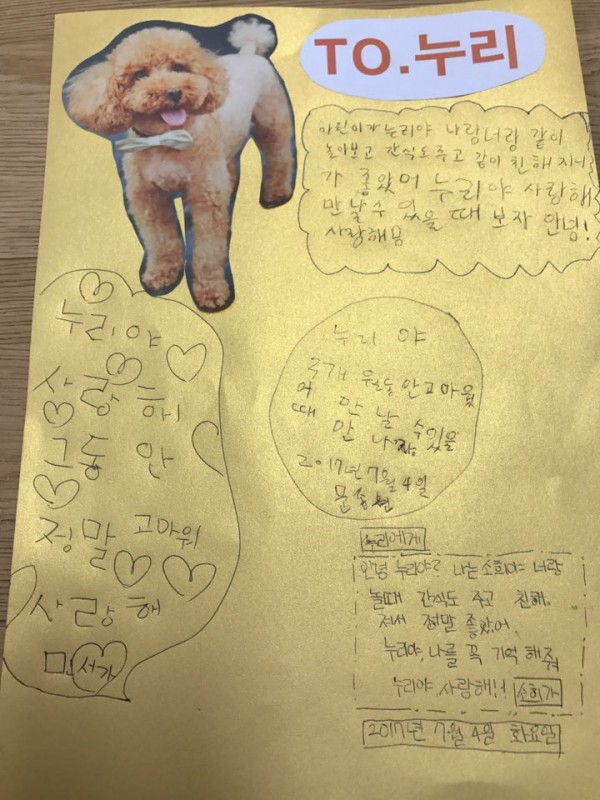 TO.누리
하린이가 누리야 나랑너랑 같이
놀아보고 간식도 주고 같이 친해 지니
가 좋았어 누리야 사랑해
만날수 있을 때 보자 안녕!
사랑해용
누리야
사랑해
그동안
정말 고마워
사랑해
서가
누리야
동안 고마웠
어 만날 수있을
때 만나
2017년 7월 4일
누리에게
안녕 누리야? 나는 소희야 너랑
놀때 간식도 주고 친해
져서 정말 좋았어.
누리야, 나를 꼭 기억 해줘
누리야 사랑해!! 소희가
2017년 7월 4일 화요일